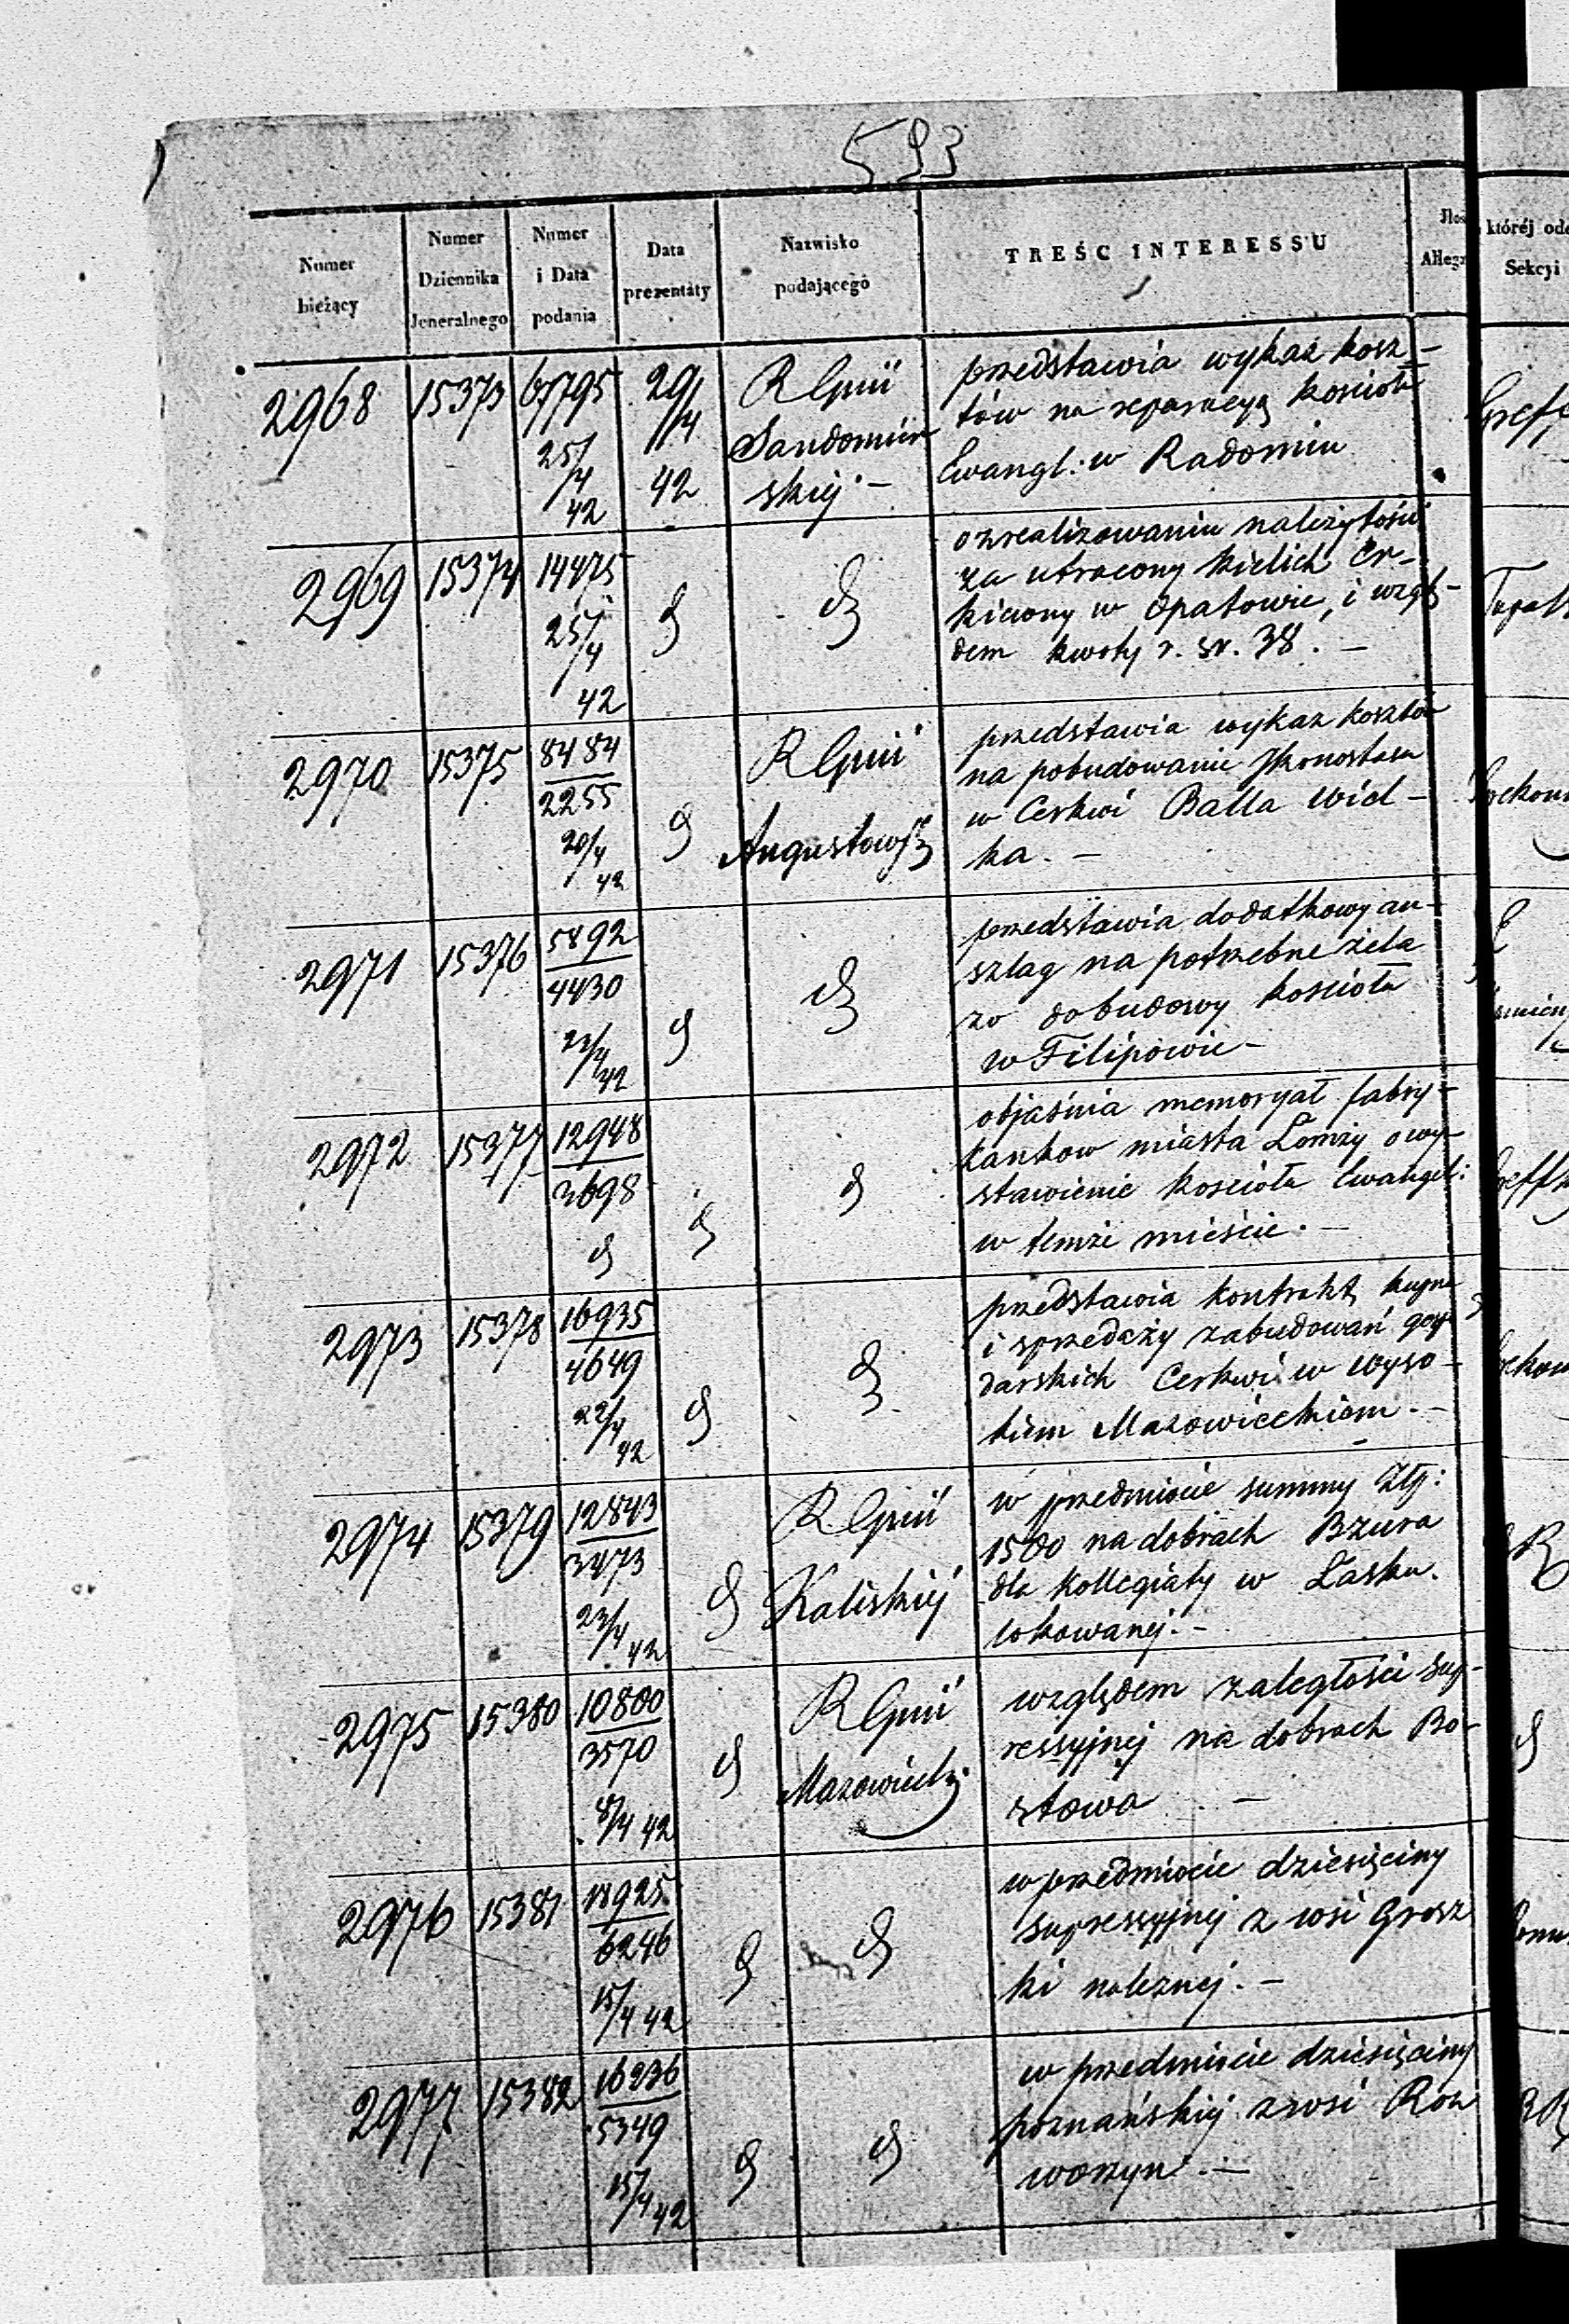 593
Numer bieżący
Numer Dziennika Jeneralnego
Numer i Data podania
Data prezentaty
Nazwisko podającego
TREŚĆ INTERESSU
której
Sekcyi
2968 15373 25/4 42 29/4 42 R Gpiii Sandomier
skiej. –
przedstawia wykaz kosz-
tów na reparacyą kościoła
Ewangl: w Radomiu
2969 15374 14475 25/4 42
o zrealizowaniu należytości
za utracony kielich Cr-
kiewny w Opatowie, i wzglę-
dem kwoty r. sr. 38. –
2970 15375 8484
2255 20/4 42 R Gpiii
Augustows
przedstawia wykaz kosztów
na pobudowanie Ikonostasu
w Cerkwi Balla Wiel-
ka. –
2971 15376 5892
4430 4 42
przedstawia dodatkowy an-
szlag na potrzebne żela
zo do budowy kościoła
w Filipowie –
2972 15377 12948
3698
objaśnia memoryał fabry-
kantow miasta Łomży o wy-
stawienie kościoła Ewangel:
w temże mieście. –
2973 15378 16935
4649 22/4 42
przedstawia kontrakt kupna
i sprzedaży zabudowań gosp
darskich Cerkwi w Wyso-
kiem Mazowieckiem. –
2974 15379 12843
3473 23/4 42 R. Gpiii
Kaliskiej
w przedmiocie summy Złp:
1500 na dobrach Bzura
dla Kollegiaty w Łasku.
lokowanej. –
2975 15380 10800
3570 4 42 R Gpiii
Mazowieck
względem zaległości sup-
ressyjnej na dobrach Bo-
rzłowo –
2976 15381 18925
6246 15/4 42
w przedmiocie dziesięciny
supressyjnej z wsi Grosz
ki należnej. –
2977 15382 16236
5349 15/4 42
w przedmiocie dziesięciny
poznańskiej z wsi Roz
worzyn. –